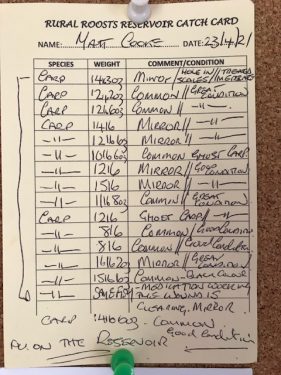 RURAL ROOSTS RESERVOIR CATCH CARD
NAME: MATT COOKE DATE: 23/4/21
SPECIES WEIGHT COMMENT/CONDITION
CARP 14lb3oz Mirror // HOLE IN SCALES // TREATED
CARP 12lb2oz COMMON // GREAT CONDITION
CARP 12lb6oz COMMON // —11—
CARP 14lb MIRROR // —11—
—11— 12lb MIRROR // —11—
—11— 10lb6oz COMMON GHOST CARP
—11— 12lb MIRROR // GOOD CONDITION
—11— 15lb MIRROR // —11—
—11— 11lb8oz COMMON // GREAT CONDITION
CARP 12lb GHOST CARP // —11—
—11— 8lb COMMON / Good Condition
—11— 8lb COMMON // Good Condition
—11— 11lb2oz MIRROR // GREAT CONDITION
—11— 15lb6oz COMMON
—11— SAME FISH - MEDICATION WORKING AND WOUND IS
CLEARING. MIRROR
CARP 14lb6oz - COMMON
Good Condition
ALL ON THE RESERVOIR